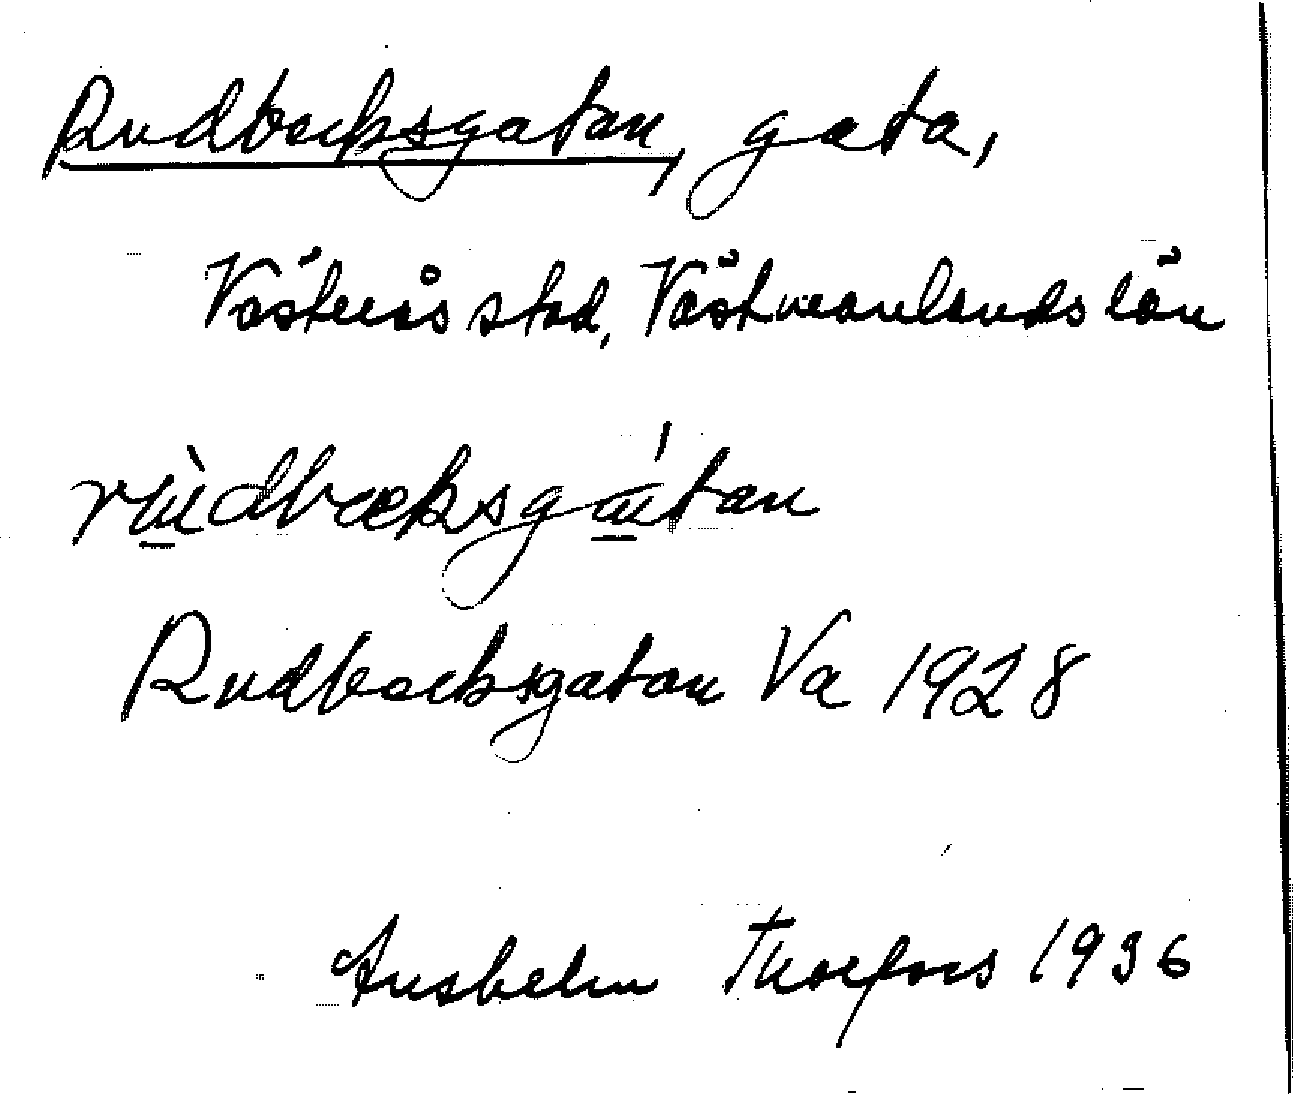 Rudbecksgatan, gata,
Västerås stad, Västmanlands län
rùdbæksgátan
Rudbecksgatan Va 1928
Anshelm Thorfors 1936